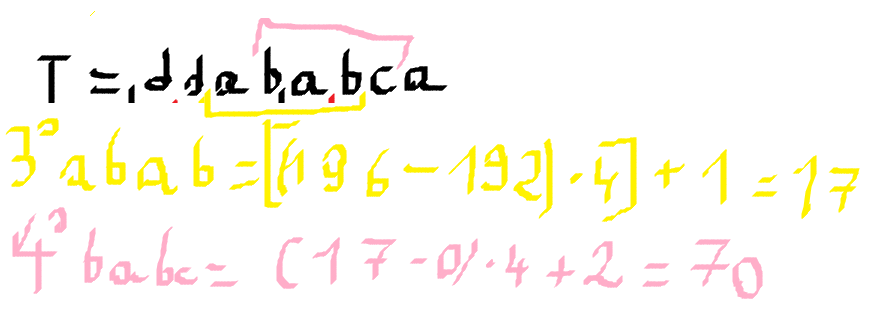 T = ddababca
3° abab = [(196 - 192) · 4] + 1 = 17
4° babc = (17 - 0) · 4 + 2 = 70